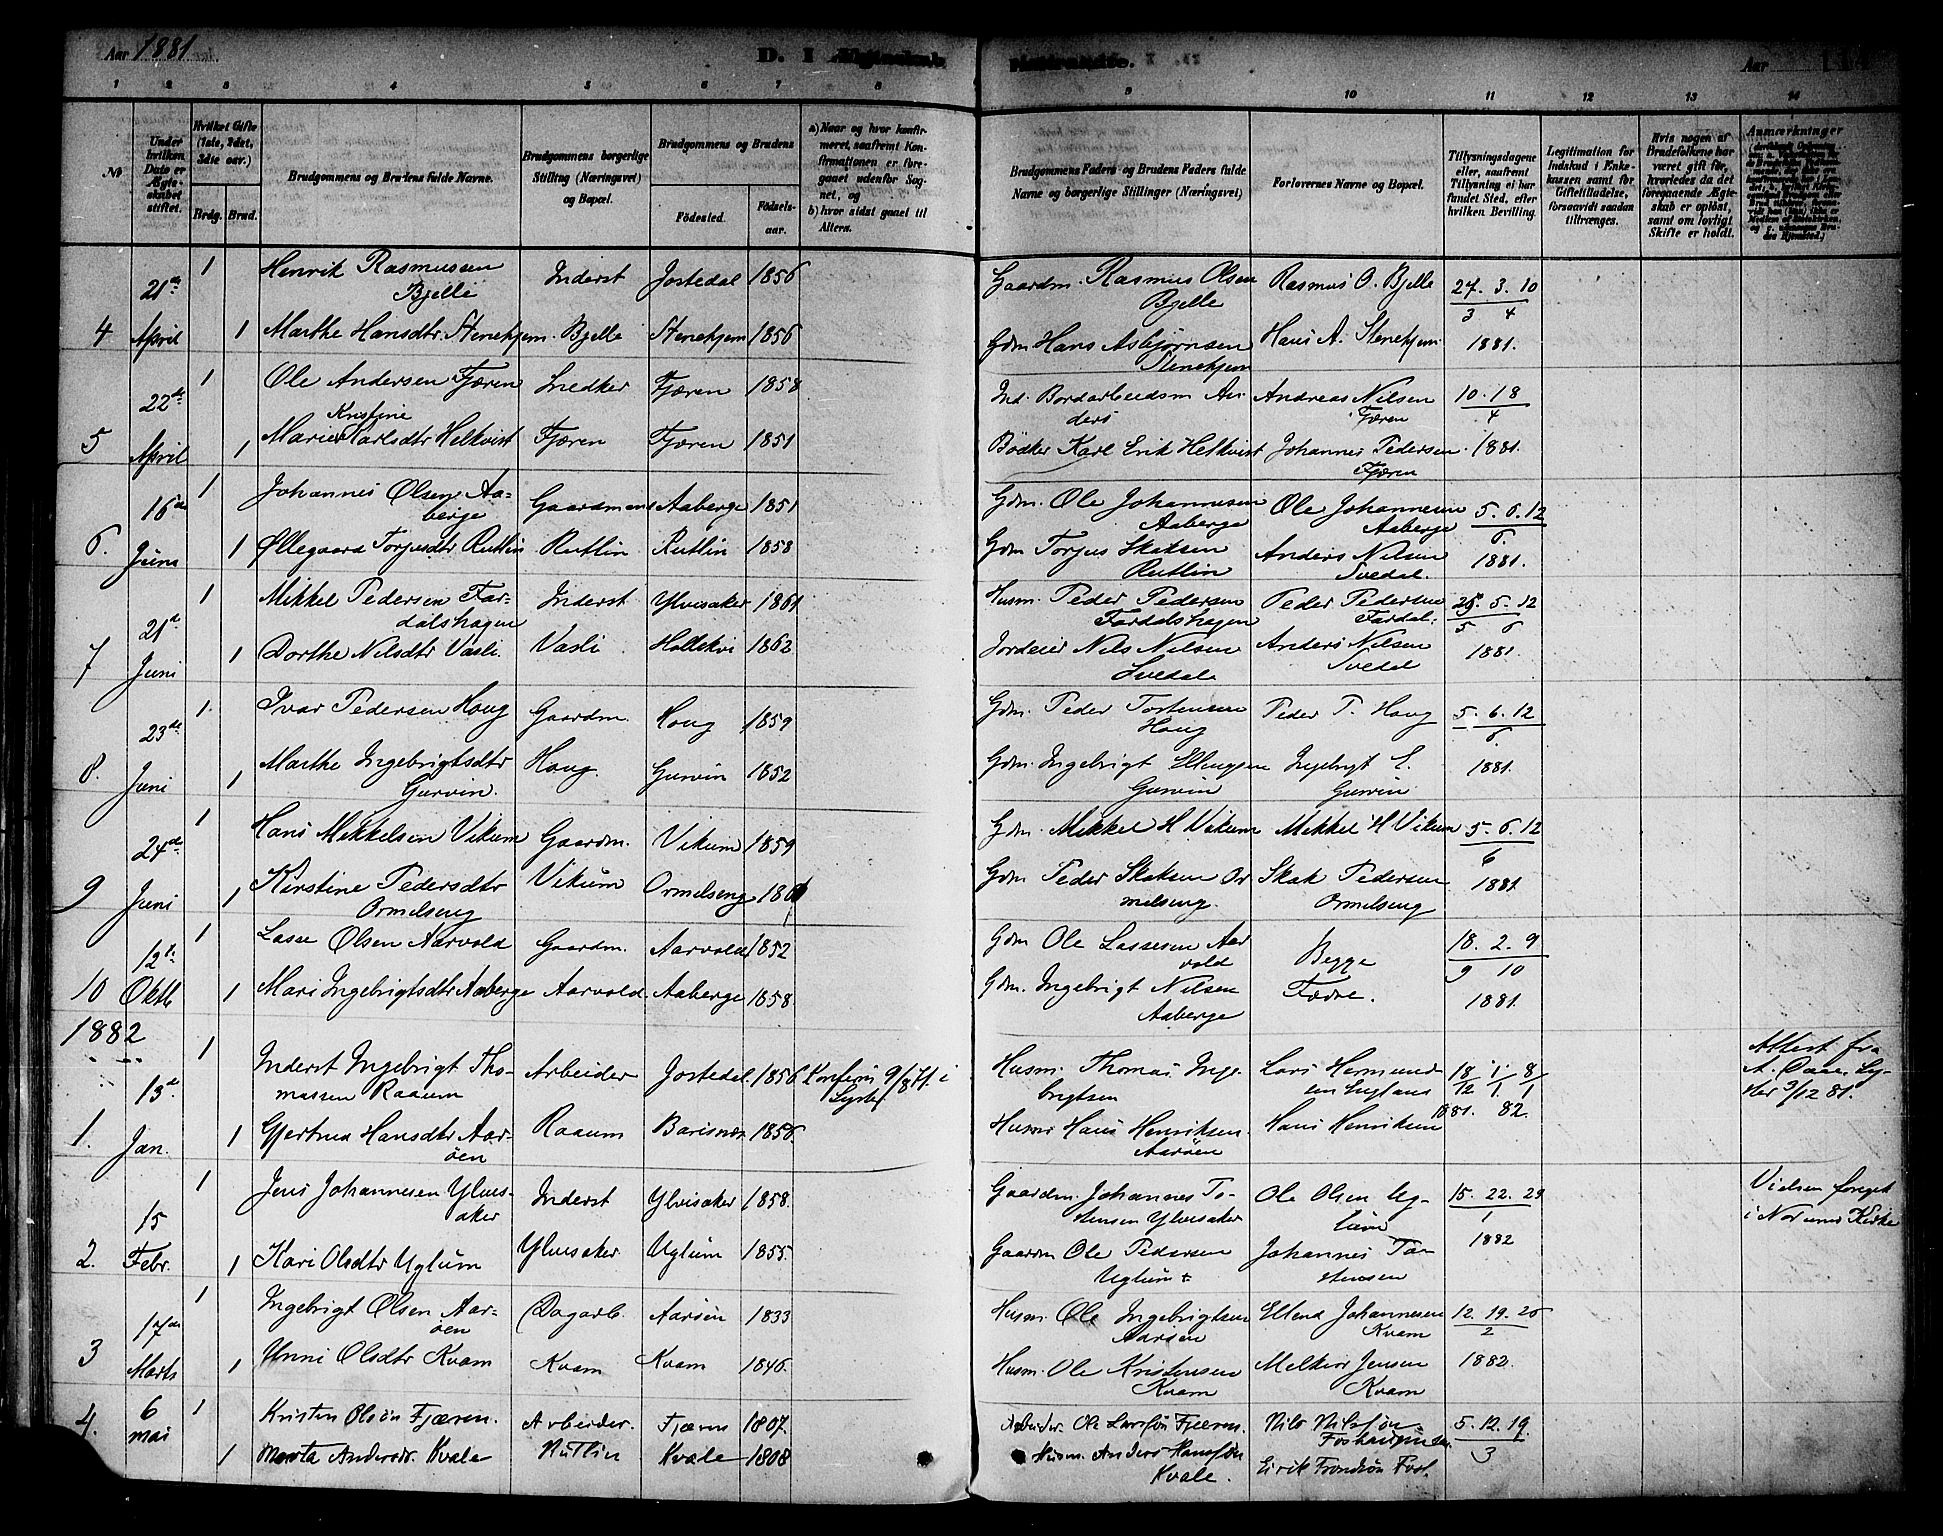 Aar 1881
D. I Ægteskab
Aar
1 2 3 4 5 6 7 8 9 10 11 12 13 14
No
Under hvilken Dato er Ægteskabet stiftet.
Hvilket Gifte (1ste, 2det, 3die osv.)
Brdg. Brud.
Brudgommens og Brudens fulde Navne.
Brudgommens borgerlige Stilling (Næringsvei) og Bopæl.
Brudgommens og Brudens
Fødested. Fødselsaar.
a) Naar og hvor konfirmeret, saafremt Konfirmationen er foregaaet udenfor Sognet, og
b) hvor sidst gaaet til Alters.
Brudgommens Faders og Brudens Faders fulde Navne og borgerlige Stillinger (Næringsvei)
Forlovernes Navne og Bopæl.
Tillysningsdagene eller, saafremt Tillysning ei har fundet Sted, efter hvilken Bevilling.
Legitimation for Indskud i Enkekassen samt for Giftetilladelse, forsaavidt saadan tiltrænges.
Hvis nogen af Brudefolkene har været gift før, hvorledes da det foregaaende Ægteskab er opløst, samt om lovligt Skifte er holdt.
Anmærkninger
21de 1 Henrik Rasmussen Inderst Jostedal 1856 Gaardm. Rasmus Olsen Rasmus O. Bjelle 27. 3. 10
Bjelle Bjelle 3 4
4 April 1 Marthe Hansdtr. Stenehjem. Bjelle Stenehjem 1856 Gdm Hans Asbjørnsen Hans A. Stenehjem 1881.
Stenehjem
22de 1 Ole Andersen Fjæren Snedker Fjæren 1858 Ind. Bordarbeidsm An- Andreas Nilsen 10. 18
Kristine ders Fjæren 4
5 April 1 Marie Karlsdtr Helkvist Fjæren Fjæren 1851 Bødker Karl Erik Helkvist Johannes Pedersen 1881.
Fjæren
16de 1 Johannes Olsen Aa- Gaardmand Aaberge 1851 Gdm. Ole Johannesen Ole Johannesen 5. 6. 12
berge Aaberge Aaberge 6
6. Juni 1 Øllegaard Torjusdtr Rutlin Rutlin Rutlin 1858 Gdm Torjus Skaksen Anders Nilsen 1881.
Rutlin Svedal.
21de 1 Mikkel Pedersen Far- Inderst Ylvisaker 1861 Husm. Peder Pedersen Peder Pedersen 25. 5. 12
dalshagen Fardalshagen Fardal. 5 6
7 Juni 1 Dorthe Nilsdtr Vasli. Vasli Hollekvi 1862 Jordeier Nils Nilsen Anders Nilsen 1881.
Svedal Svedal
23de 1. Ivar Pedersen Houg Gaardm. Houg 1859 Gdm. Peder Tostensen Peder T. Houg 5. 6. 12
Houg 6.
8. Juni 1 Marthe Ingebrigtsdtr Houg. Gurvin 1852 Gdm. Ingebrigt Ellingsen Ingebrigt E. 1881.
Gurvin. Gurvin Gurvin
24de 1 Hans Mikkelsen Vikum Gaardm. Vikum 1859 Gdm. Mikkel H Vikum Mikkel H Vikum 5. 6. 12
6
9 Juni 1 Kirstine Pedersdtr Vikum Ormelseng Gdm Peder Skaksen Or Skak Pedersen 1881
Ormelseng melseng. Ormelseng
12te 1 Lasse Olsen Aarvold Gaardm. Aarvold 1852 Gdm Ole Lassesen Aar Begge 18. 2. 9
vold 9 10
10 Oktb 1 Mari Ingebrigtsdtr Aaberge Aarvold. Aaberge 1858. Gdm. Ingebrigt Nilsen Fædre. 1881.
Aaberge
1882
13de 1 Inderst Ingebrigt Tho- Arbeider Jostedal 1856. Konfirm 9/8 71 i Husm. Thomas Inge- Lars Hermund- 18 1 8 Attest fra
massen Raaum Lyster brigtsen sen 12 1 1
1. Jan. 1 Gjertrud Hansdtr Aar- Raaum Barisnæs 1856. Husm Hans Henriksen Hans Henriksen 1881. 82. 3/12 81.
øen Aarøen
15 1 Jens Johannesen Ylvis- Inderst Ylvisaker 1858. Gaardm. Johannes To- Ole Olsen Ug- 15. 22. 29 Vielsen foreget
aker stensen Ylvisaker lum 1 i Norums Kirke
2. Febr. 1 Kari Olsdtr Uglum Ylvisaker Uglum 1855. Gaardm Ole Pedersen Johannes To- 1882
Uglum + stensen
17de 1 Ingebrigt Olsen Aar- Dagarb. Aarøen 1833 Husm. Ole Ingebrigtsen Ellend Johannesen 12. 19. 26
øen Aarøen Kvam 2
3 Marts 1 Unni Olsdtr Kvam Kvam Kvam 1846. Husm. Ole Kristensen Melkior Jensen 1882.
Kvam Kvam
4. 6 mai 1 Kristen Olsøn Fjæren. Arbeider. Fjæren 1807. Arbeider. Ole Larssøn Fjæren. Nils Nilssøn 5. 12. 19.
1 Marta Andersdr. Kvale Rutlin Kvale 1808 Husm. Anders Hanssøn 3
Kvale. Eirik